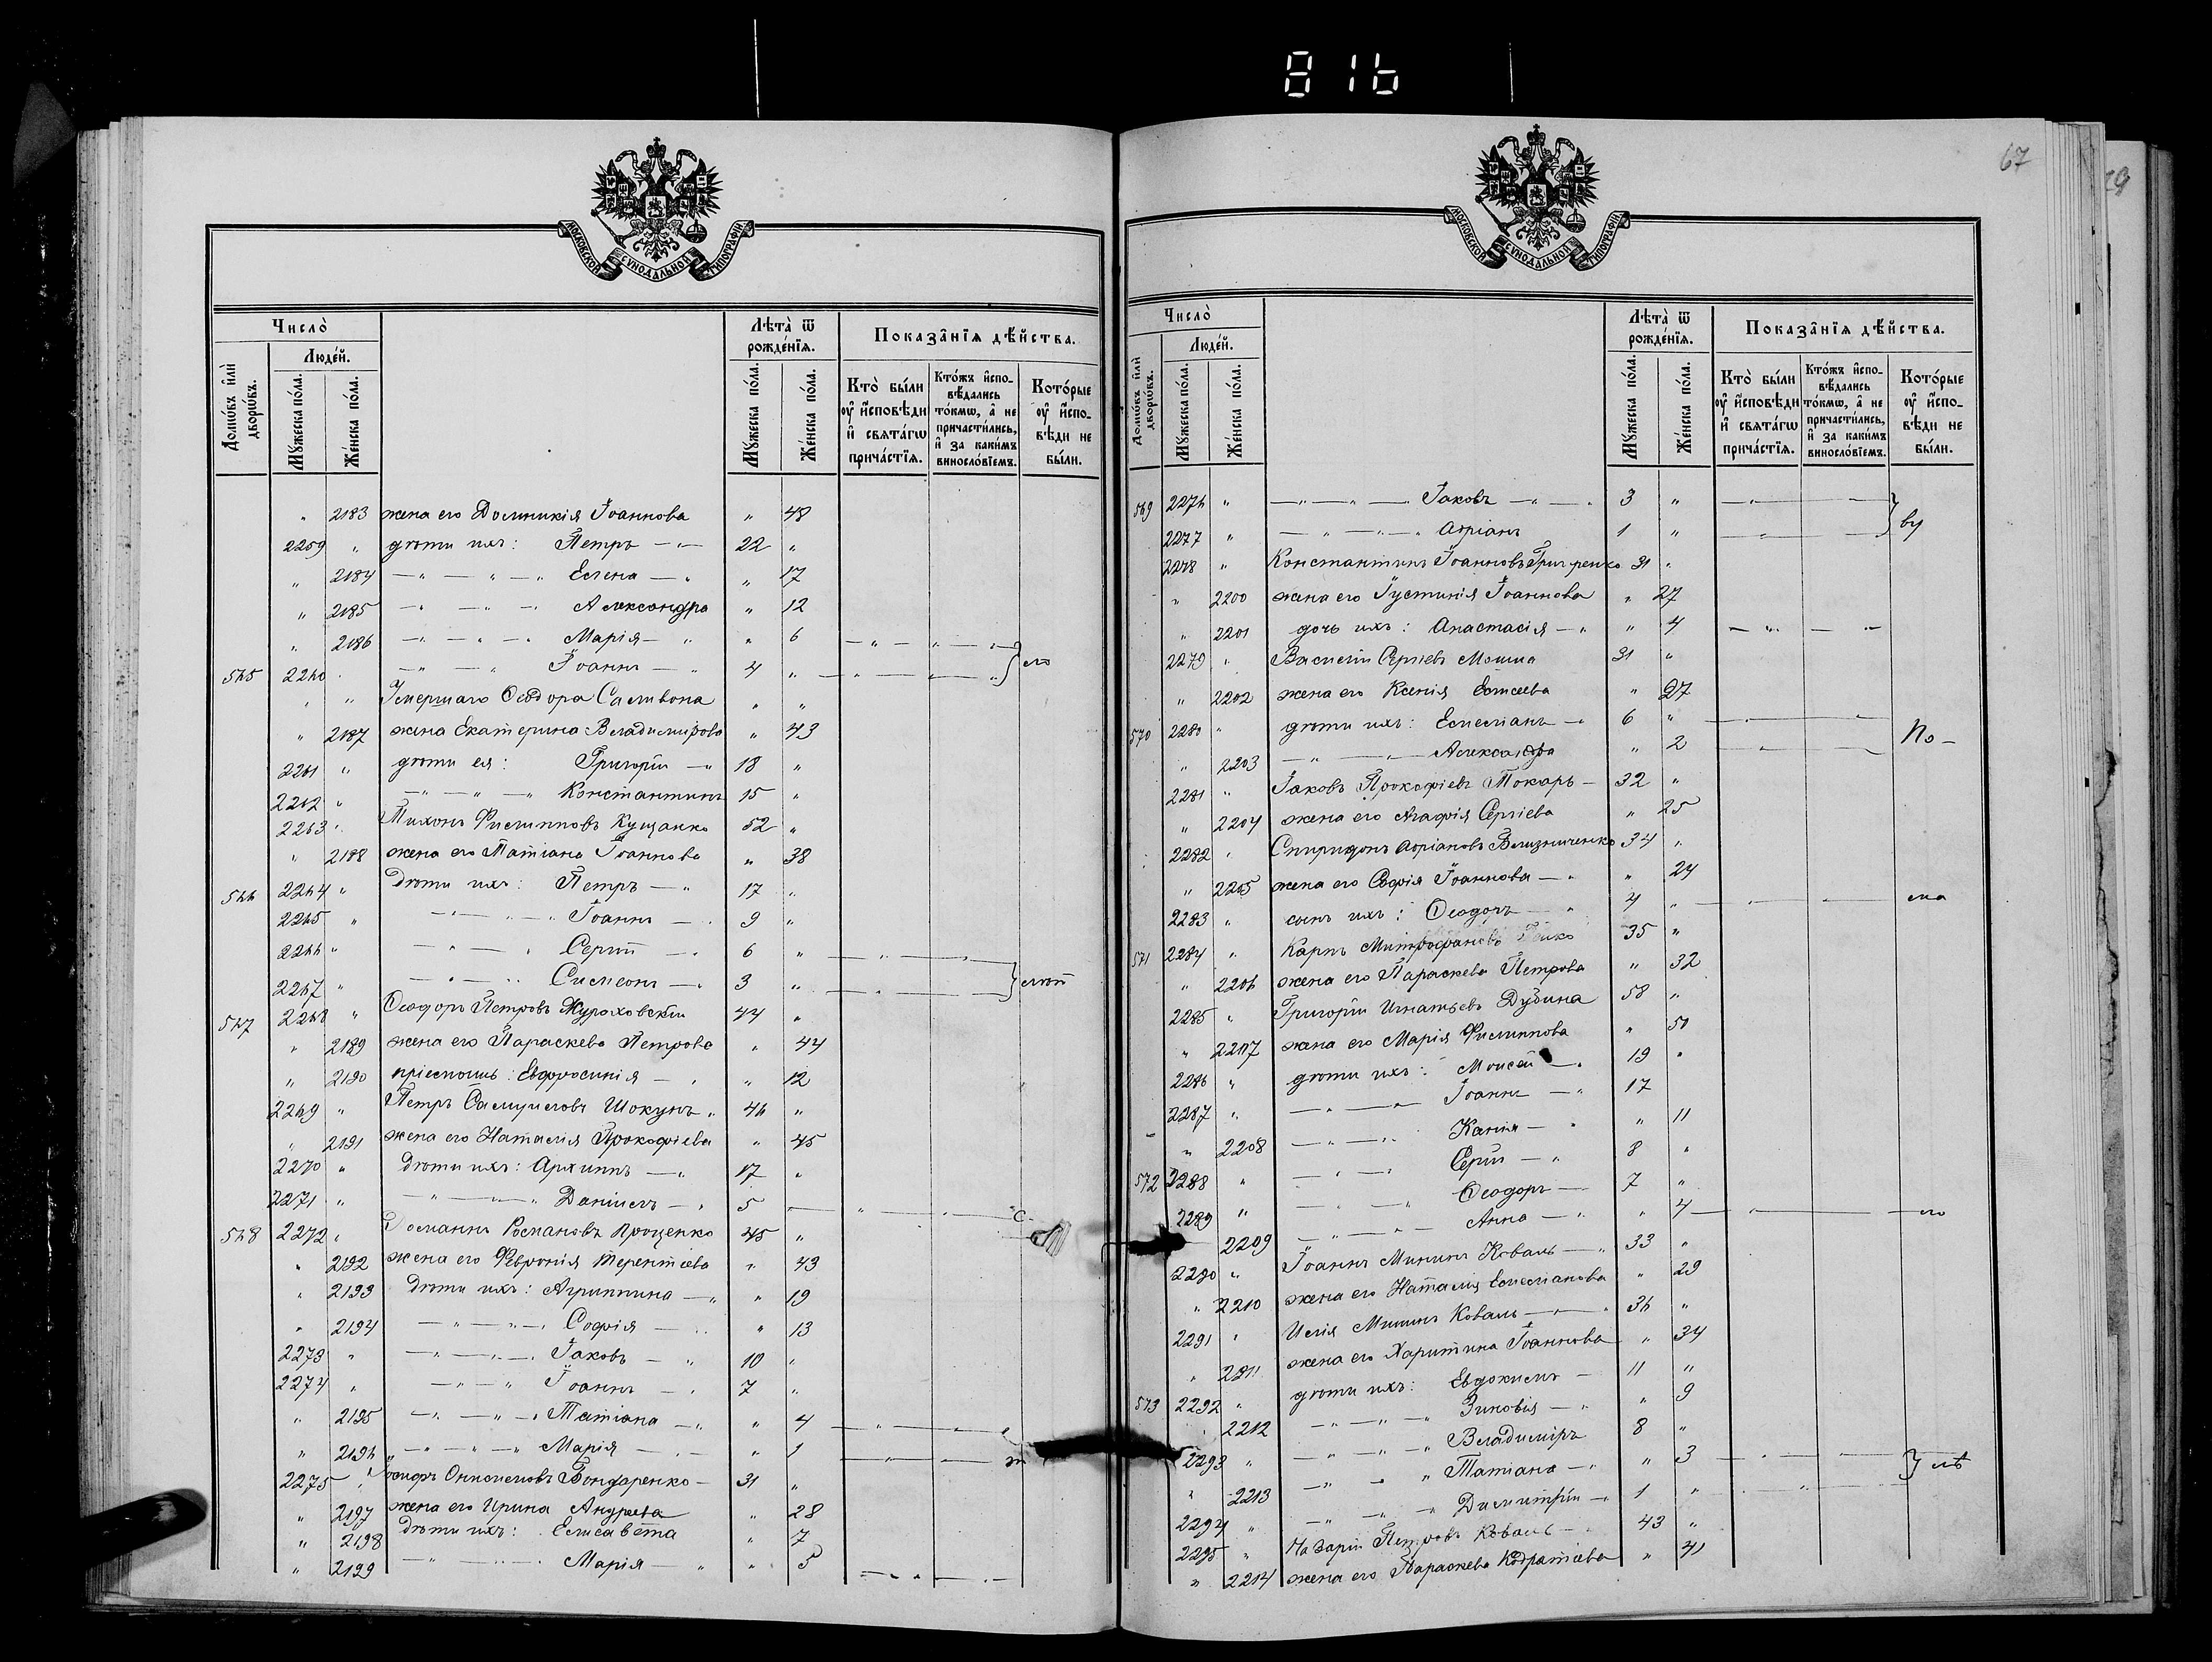 816
67
29
МОСКОВСКОЙ СѴНОДАЛЬНОЙ ТИПОГРАФІИ
Число̀
Люде́й.
Домѡ́въ и҆лѝ дворѡ́въ.
Мꙋ́жеска по́ла.
Же́нска по́ла.
Лѣ́та ѿ рожде́нїѧ.
Мꙋ́жеска по́ла.
Же́нска по́ла.
Показа̑нїѧ дѣ́йства.
Кто̀ бы́ли ᲂу҆ и҆сповѣ́ди и҆ свѧта́гѡ прича́стїѧ.
Кто́жъ и҆сповѣ́дались то́кмѡ, а҆ не причасти́лись, и҆ за каки́мъ винословїемъ.
Кото́рые ᲂу҆ и҆сповѣ́ди не бы́ли.
" 2183 жена его Домникія Іоаннова " 48
2259 " дѣти ихъ: Петръ — " — 22 "
" 2184 — " — " — " Елена — " " 17
" 2185 — " — " — " Александра " 12
" 2186 — " — " — " Марія — " " 6 — " — " — "
565 2260 " — " — " Іоаннъ — " 4 " — " — " — " } его
" " Умершаго Ѳеодора Саливона " "
" 2187 жена Екатерина Владимірова " 43
2261 " дѣти ея: Григорій — " 18 "
2262 " — " — " — " Константинъ 15 "
2263 " Тихонъ Филипповъ Куцанко 52 "
" 2188 жена его Татіана Іоаннова " 38
566 2264 " Дѣти ихъ: Петръ — " 17 "
2265 " — " — " — " Іоаннъ — " 9 "
2266 " — " — " Сергій — " 6 " — " — " —
2267 " — " — " Симеонъ — " 3 " — " — " — }
567 2268 " Ѳеодоръ Петровъ Жураховскій 44 "
" 2189 жена его Параскева Петрова " 44
" 2190 пріемышъ: Евфросинія — " " 12
2269 " Петръ Самуиловъ Шокунъ " 46 "
" 2191 жена его Наталія Прокофіева " 45
2270 " Дѣти ихъ: Архиппъ — " 17 "
2271 " — " — " — " Даніилъ — " 5 — " — " — с.
568 2272 " Романъ Романовъ Проценко 45 "
" 2192 жена его Февронія Терентіева " 43
" 2193 Дѣти ихъ: Агриппина — " " 19
" 2194 — " — " — " Софія — " " 13
2273 " — " — " — " Іаковъ — " 10 "
2274 " — " — " — " Іоаннъ — " 7 "
" 2195 — " — " — " Татіана — " " 4 — " — " — "
" 2196 — " — " — " Марія — " — " 1 — " — " —
2275 " Іосифъ Онисимовъ Бондаренко — 31 "
" 2197 жена его Ирина Андреева " 28
" 2198 Дѣти ихъ: Елисавета " 7
" 2199 — " — " — " Марія — " " 5 — " — " —
Число̀
Люде́й.
Домѡ́въ и҆лѝ дворѡ́въ.
Мꙋ́жеска по́ла.
Же́нска по́ла.
Лѣ́та ѿ рожде́нїѧ.
Мꙋ́жеска по́ла.
Же́нска по́ла.
Показа̑нїѧ дѣ́йства.
Кто̀ бы́ли ᲂу҆ и҆сповѣ́ди и҆ свѧта́гѡ прича́стїѧ.
Кто́жъ и҆сповѣ́дались то́кмѡ, а҆ не причасти́лись, и҆ за каки́мъ винословїемъ.
Кото́рые ᲂу҆ и҆сповѣ́ди не бы́ли.
МОСКОВСКОЙ СѴНОДАЛЬНОЙ ТИПОГРАФІИ
569 2276 " — " — " — Іаковъ — " — " 3 " — " —
2277 " — " — " — " Адріанъ 1 " — " — } ву
2278 " Константинъ Іоанновъ Григоренко 31 "
" 2200 жена его Іустинія Іоаннова " 27
" 2201 дочь ихъ: Анастасія — " " 4 — " — " —
2279 " Василій Сергіевъ Мошна 31 "
" 2202 жена его Ксенія Елисеева " 27
570 2280 " дѣти ихъ: Емеліанъ — " 6 " — " — " — По —
" 2203 — " — " — Александра " 2 — " — " —
2281 " Іаковъ Прокофіевъ Токарь — 32 "
" 2204 жена его Агафія Сергіева " 25
2282 " Спиридонъ Адріановъ Близниченко 34 "
" 2205 жена его Софія Іоаннова — " " 24
2283 " сынъ ихъ: Ѳеодоръ — " 4 " — " — " — ма
571 2284 " Карпъ Митрофановъ 35 "
" 2206 жена его Параскева Петрова " 32
2285 " Григорій Игнатьевъ Дубина 58 "
" 2207 жена его Марія Филиппова " 50
2286 " дѣти ихъ: Моисей — " 19 "
2287 " — " — " Іоаннъ — " 17
" 2208 — " — " — " " 11
572 2288 " — " — " Сергій — " 8 "
2289 " — " — " Ѳеодоръ — 7 "
" 2209 — " — " — Анна — " " 4 — " — " — го
2290 " Іоаннъ Мининъ Коваль — " 33 "
" 2210 жена его Наталія Емеліанова " 29
2291 " Илія Мининъ Коваль — " — " 36 "
" 2211 жена его Харитина Іоаннова " 34
573 2292 " дѣти ихъ: Евдокимъ — 11 "
" 2212 — " — " — " Зиновія — " " 9
2293 " — " — " — " Владиміръ 8 "
" 2213 — " — " — " Татіана — " " 3 — " — " —
2294 " — " — " — " Димитрій — " 1 " — " — }
2295 " Назарій Петровъ Коваль — " 43 "
" 2214 жена его Параскева Кодратіева " 41